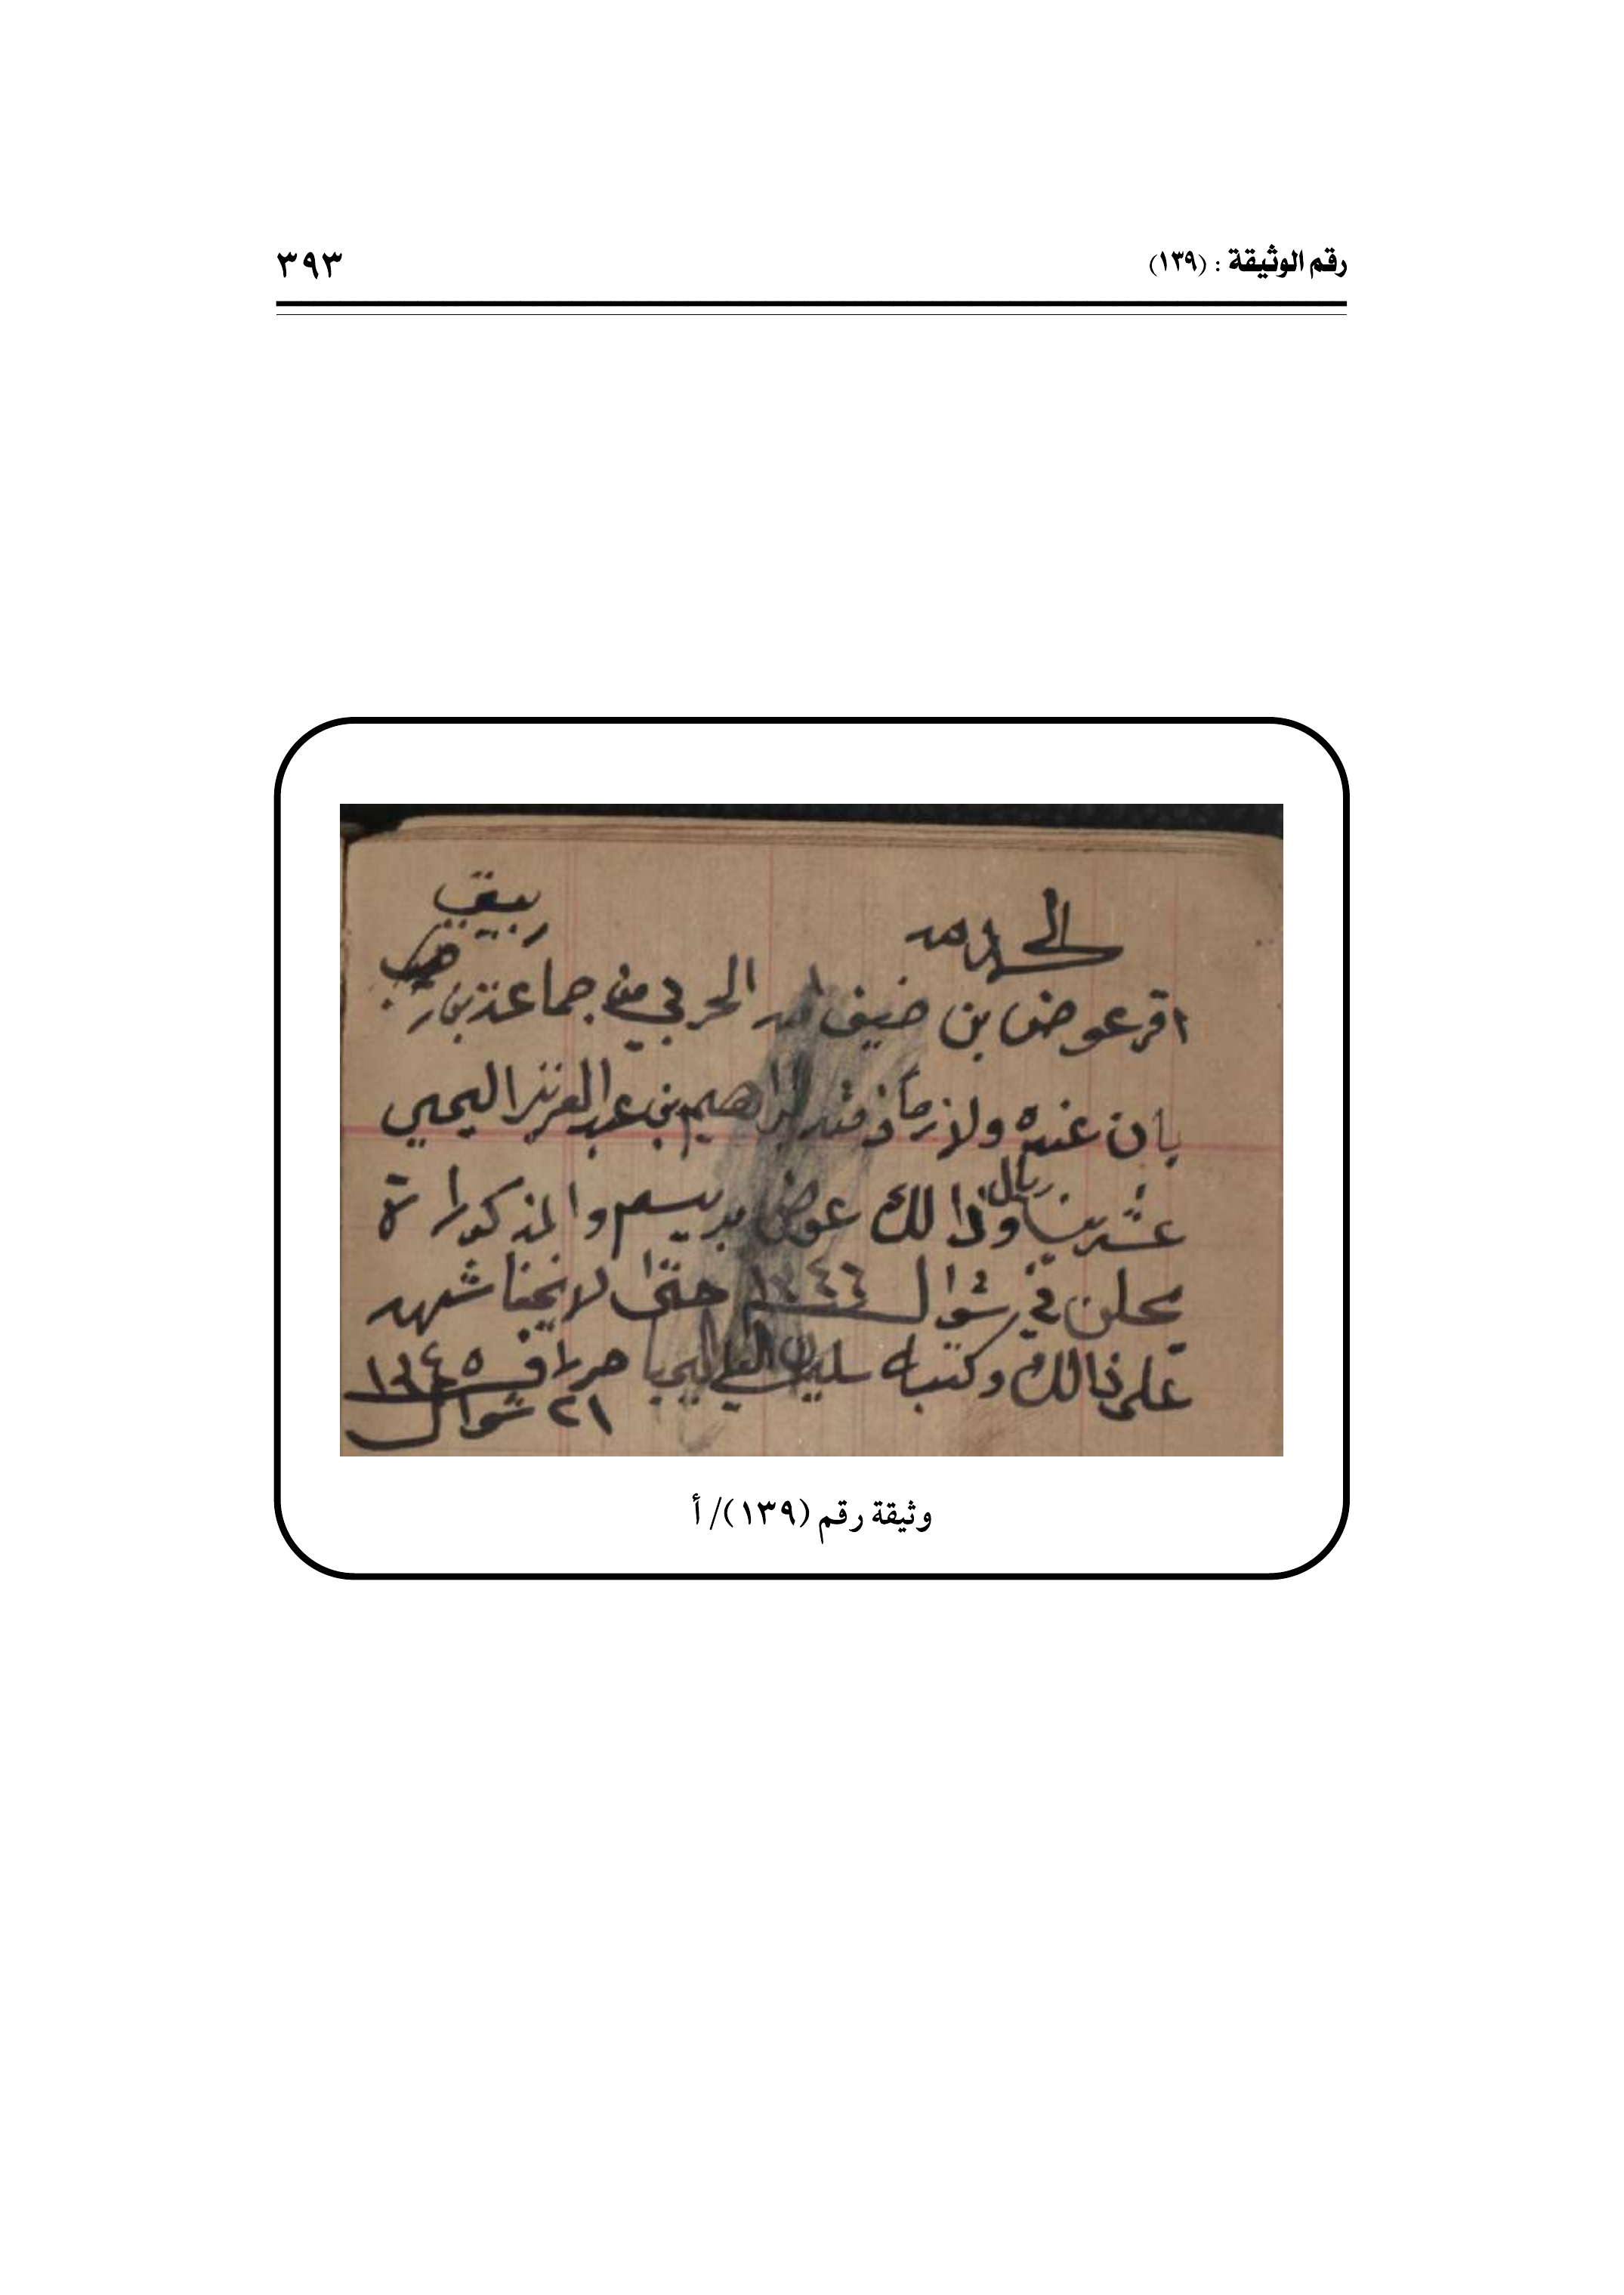 رقم الوثيقة : (١٣٩)
٣٩٣
الحمد
اقر عوض بن ضيف الله الحربي من جماعة بن ربيق
بان عنده ولازم ذمته لبراهيم بن عبد العزيز اليحيى
عشرين ريال وذالك عوض بريسم والمذكورات
يحلن في شوال ١٣٤٦ حتى لا يخفا شهد
على ذالك وكتبه سليمان العلي اليحيا حرر في ١٣٤٥
٢١ شوال
وثيقة رقم (١٣٩)/ أ